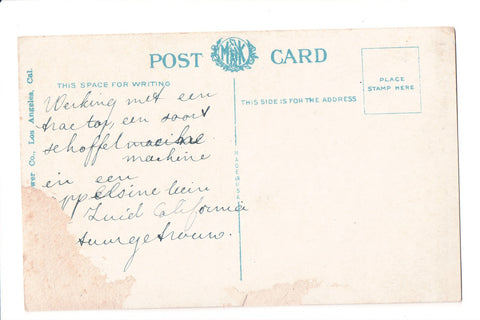 POST CARD
M&K
THIS SPACE FOR WRITING
THIS SIDE IS FOR THE ADDRESS
PLACE
STAMP HERE
MADE IN U.S.A.
wer Co., Los Angeles, Cal.
Werking met een
tractor, een soort
schoffel macihne
machine
in een
appelsine tuin
Zuid California